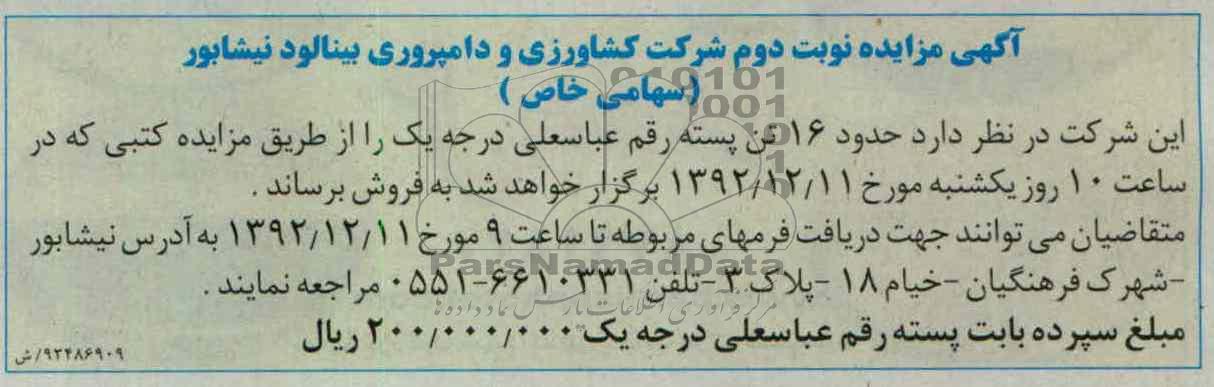 آگهی مزایده نوبت دوم شرکت کشاورزی و دامپروری بینالود نیشابور
(سهامی خاص )
این شرکت در نظر دارد حدود ۱۶ تن پسته رقم عباسعلی درجه یک را از طریق مزایده کتبی که در
ساعت ۱۰ روز یکشنبه مورخ ۱۳۹۲/۱۲/۱۱ برگزار خواهد شد به فروش برساند .
متقاضیان می توانند جهت دریافت فرمهای مربوطه تا ساعت ۹ مورخ ۱۳۹۲/۱۲/۱۱ به آدرس نیشابور
ParsNamadData
-شهرک فرهنگیان -خیام ۱۸ -پلاک ۳ -تلفن ۶۶۱۰۳۳۱-۰۵۵۱ مراجعه نمایند .
مرکز فرآوری اطلاعات پارس نماد داده ها
مبلغ سپرده بابت پسته رقم عباسعلی درجه یک ۲۰۰/۰۰۰/۰۰۰ ریال
۹۲۴۸۶۹۰۹/ش